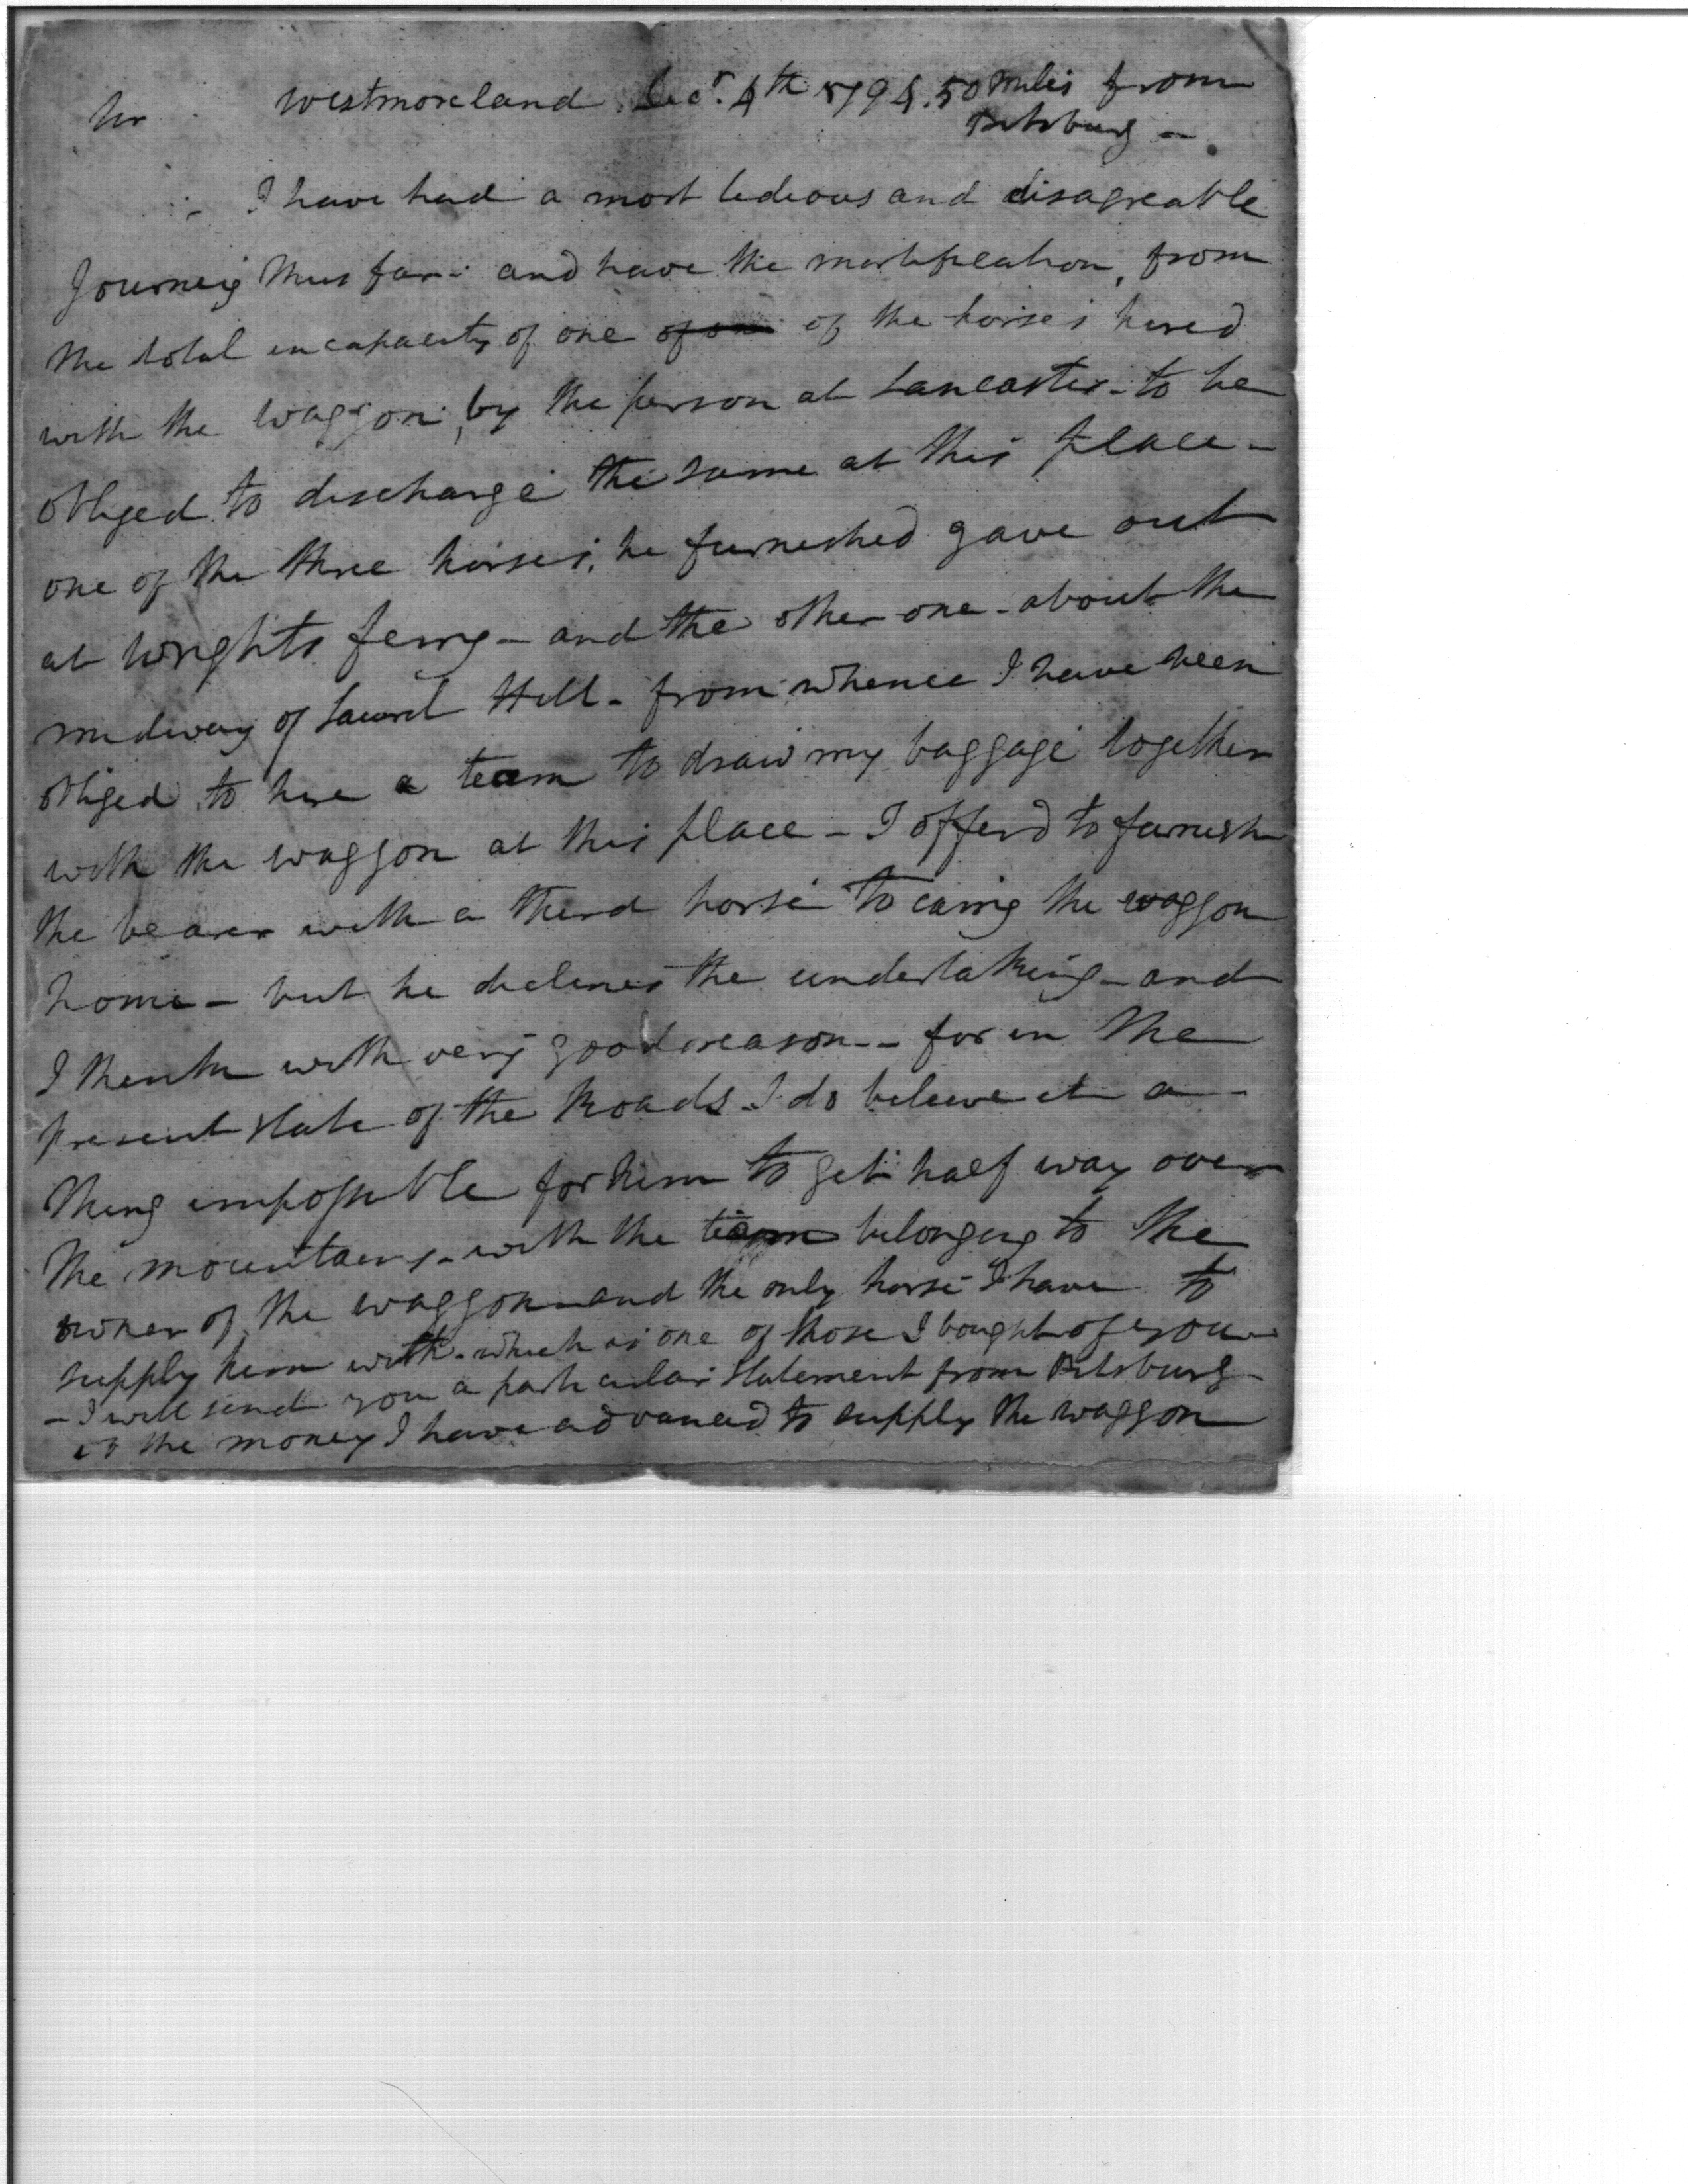 Sir Westmoreland Decr. 4th 1794. 50 miles from
Pitsburg -
I have had a most tedious and disagreable
Journey thus far - and have the mortification, from
the total incapacity of one of the horses hired
with the waggon, by the person at Lancaster - to be
obliged to discharge the same at this place -
one of the three horses, he furnished gave out
at wrights ferry - and the other one - about the
midway of Laurel Hill - from whence I have been
obliged to hire a team to draw my baggage together
with the waggon at this place - I offerd to furnish
the bearer with a third horse to carry the waggon
home - but he declines the undertaking - and
I think with very good reason - for in the
present state of the Roads I do believe it a
thing impossible for him to get half way over
the mountains - with the team belonging to the
owner of the waggon - and the only horse I have to
supply him with - which is one of those I bought of you
- I will send you a particular statement from Pitsburg
of the money I have advanced to supply the waggon